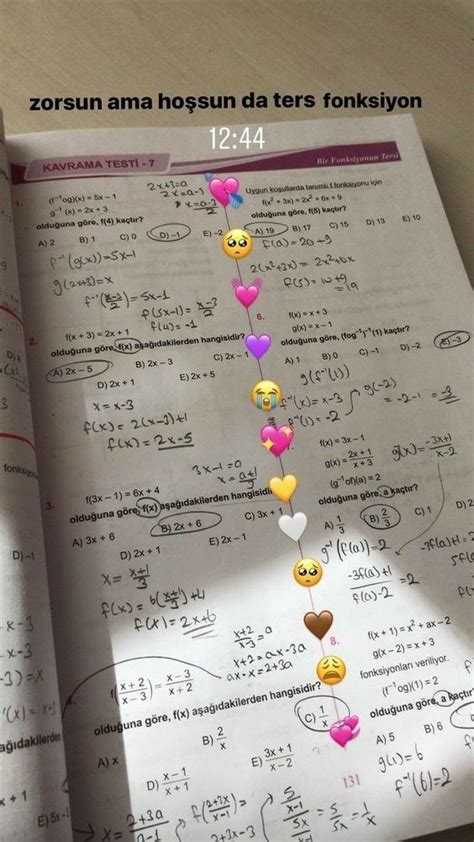 zorsun ama hoşsun da ters fonksiyon
12:44
KAVRAMA TESTİ - 7
Bir Fonksiyonun Tersi
1.
(f⁻¹og)(x) = 5x − 1
g⁻¹(x) = 2x + 3
olduğuna göre, f(4) kaçtır?
A) 2 B) 1 C) 0 D) −1 E) −2
2x+3=a
2x=a-3
x=a-3/2
f⁻¹(g(x))=5x-1
g(2x+3)=x
f⁻¹(x-3/2)=5x-1
f(5x-1)=x-3/2
f(4)=-1
2.
f(x + 3) = 2x + 1
olduğuna göre, f(x) aşağıdakilerden hangisidir?
A) 2x − 5 B) 2x − 3 C) 2x − 1
D) 2x + 1 E) 2x + 5
x=x-3
f(x)=2(x-3)+1
f(x)=2x-5
3.
3x-1=a
x=a+1/3
f(3x − 1) = 6x + 4
olduğuna göre, f(x) aşağıdakilerden hangisidir
A) 3x + 6 B) 2x + 6 C) 3x + 1
D) 2x + 1 E) 2x − 1
x=x+1/3
f(x)=6(x+1/3)+4
f(x)=2x+6
x+2/x-3=a
x+2=ax-3a
ax-x=2+3a
4.
f(x+2/x−3)=x−3/x+2
olduğuna göre, f(x) aşağıdakilerden hangisidir?
A) x B) 2/x C) 1/x
D) x−1/x+1 E) 3x+1/x−2
x=2+3a/a-1
f(2+3x/x-1)=
5/x-1
5x
=5/5x=1/x
Uygun koşullarda tanımlı f fonksiyonu için
f(x² + 3x) = 2x² + 6x + 9
olduğuna göre, f(5) kaçtır?
A) 19 B) 17 C) 15 D) 13 E) 10
f(a)=2a+9
2(x²+3x)=2x²+6x
f(5)=10+9
=19
6.
f(x) = x + 3
g(x) = x − 1
olduğuna göre, (fog⁻¹)⁻¹(1) kaçtır?
A) 1 B) 0 C) −1 D) −2 E) −3
g(f⁻¹(1))
f⁻¹(x)=x-3
f⁻¹(1)=-2
g(-2)
=-2-1=-3
f(x) = 3x − 1
g(x) = 2x+1/x+3
(g⁻¹of)(a) = 2
olduğuna göre, a kaçtır?
A) 1/3 B) 2/3 C) 1
g⁻¹(f(a))=2
-3f(a)+1/f(a)-2=2
8.
f(x + 1) = x² + ax − 2
g(x − 2) = x + 3
fonksiyonları veriliyor.
(f⁻¹og)(1) = 2
olduğuna göre, a kaçtır
A) 5 B) 6
g(1)=6
f⁻¹(6)=2
131